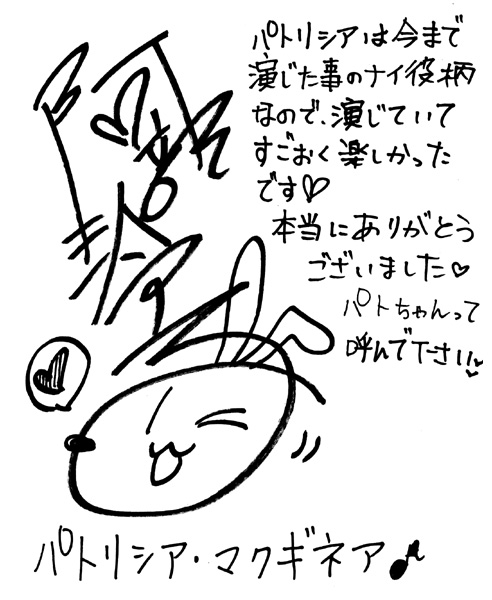 パトリシアは今まで
演じた事のナイ役柄
なので、演じていて
すごおく楽しかった
です♡
本当にありがとう
ございました♡
パトちゃんって
呼んで下さい♡
パトリシア・マクギネア♪